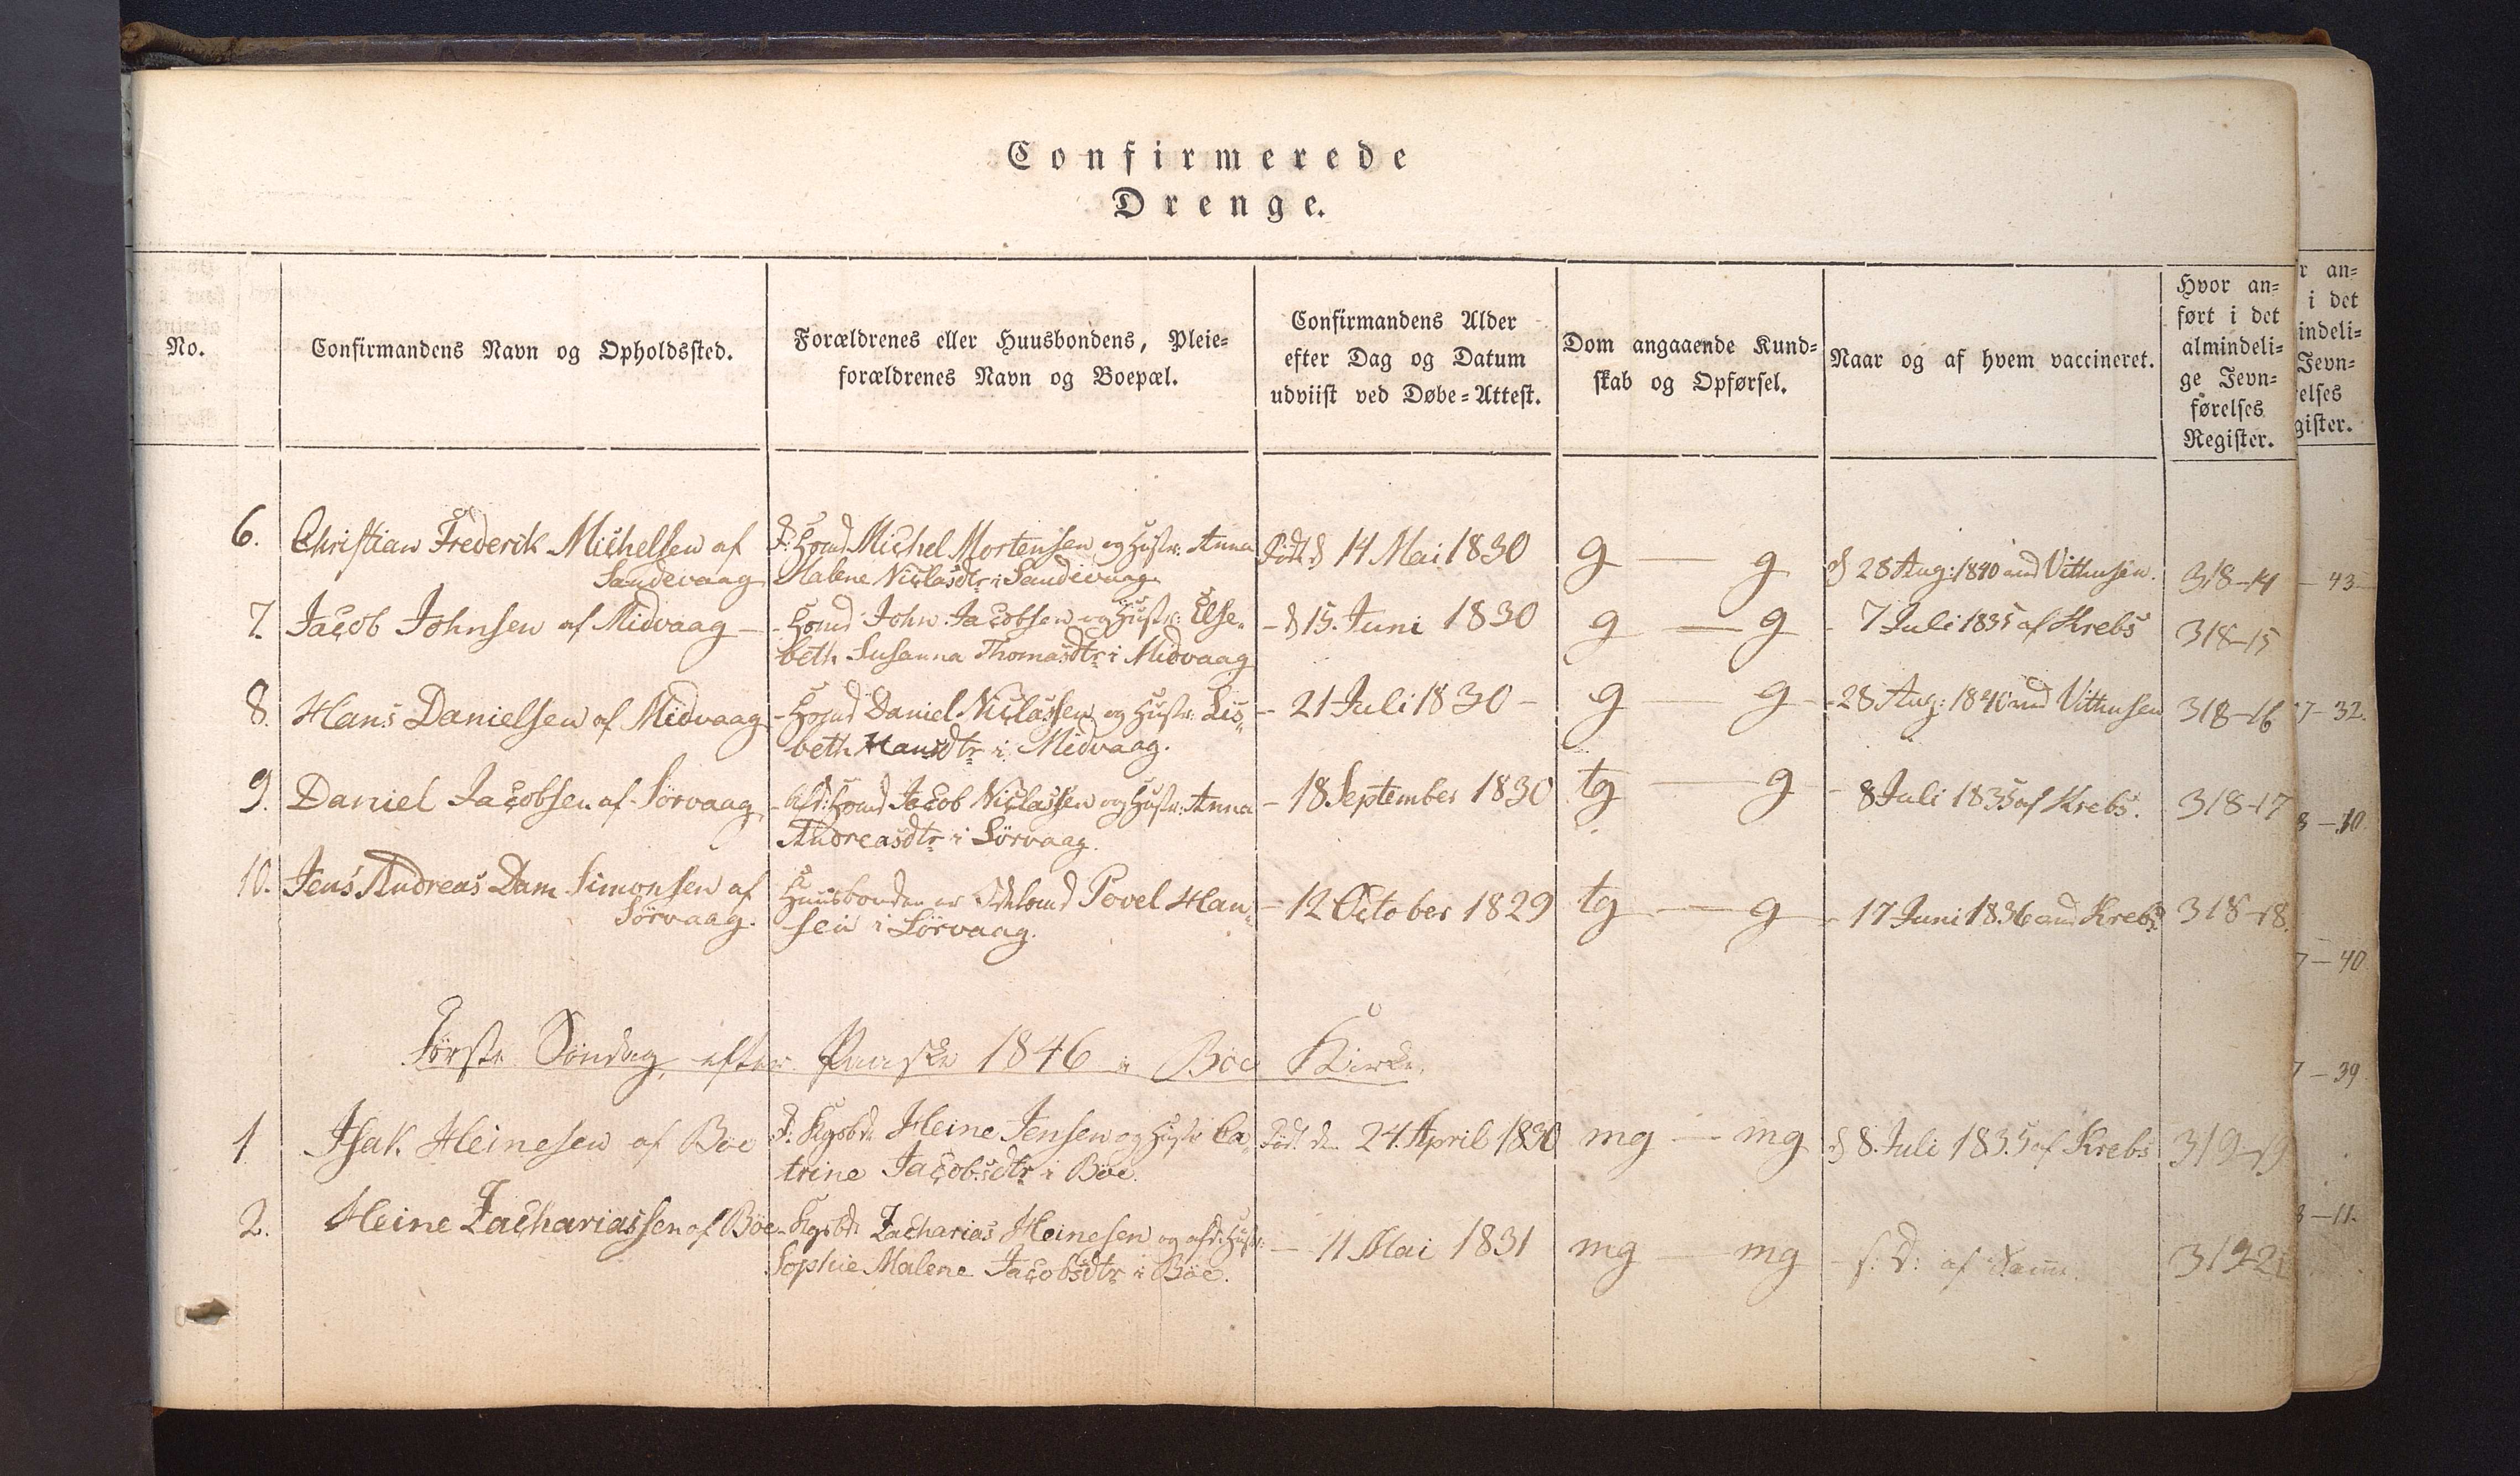 Confirmerede
Drenge.
No.
Confirmandens Navn og Opholdssted.
Forældrenes eller Huusbondens, Pleie=
forældrenes Navn og Boepæl.
Confirmandens Alder
efter Dag og Datum
udviist ved Døbe=Attest.
Dom angaaende Kund=
skab og Opførsel.
Naar og af hvem vaccineret.
Hvor an=
ført i det
almindeli=
ge Jevn=
førelses
Register.
6. Christian Frederik Michelsen af
Sandevaag
F: Michel Mortensen og Hustr: Anna
Malene Niclasdtr i Sandevaag
født d 14 Mai 1830
g — g
d 28 Aug: 1840 Vithusen.
318-14
7. Jacob Johnsen af Midvaag —
- John Jacobsen og Hustr: Else=
beth Susanna Thomasdtr i Midvaag
- d 15. Juni 1830
g — g
- 7 Juli 1835 af Krebs
318-15
8. Hans Danielsen af Midvaag
- Daniel Niclassen og Hustr: Lis=
beth Hansdtr i Midvaag.
- 21 Juli 1830 -
g — g
- 28 Aug: 1840 Vithusen
318-16
9. Daniel Jacobsen af Sörvaag
- Jacob Niclassen og Hustr: Anna
Andreasdtr i Sörvaag.
- 18 September 1830
tg — g
- 8 Juli 1835 af Krebs.
318-17
10. Jens Andreas Dam Simonsen af
Sörvaag.
Huusbonden er Povel Han=
sen i Sörvaag.
- 12 October 1829
tg — g
- 17 Juni 1836 Krebs
318-18.
Förste Söndag efter Paaske 1846 i Böe Kirke.
1 Isak Heinesen af Böe
F: Kgsbd. Heine Jensen og Hustr Ca=
trine Jacobsdtr i Böe.
født den 24. April 1830
mg — mg
d 8. Juli 1835 af Krebs
319-19
2. Heine Zachariassen af Böe
- Kgsbd. Zacharias Heinesen og afd: Hustr:
Sophie Malene Jacobsdtr i Böe.
- 11 Mai 1831
mg — mg
- s: D: af Samme.
r an=
i det
indeli=
Jevn=
relses
gister.
- 43
7-32.
8-10
7-40
7-39
8-11.